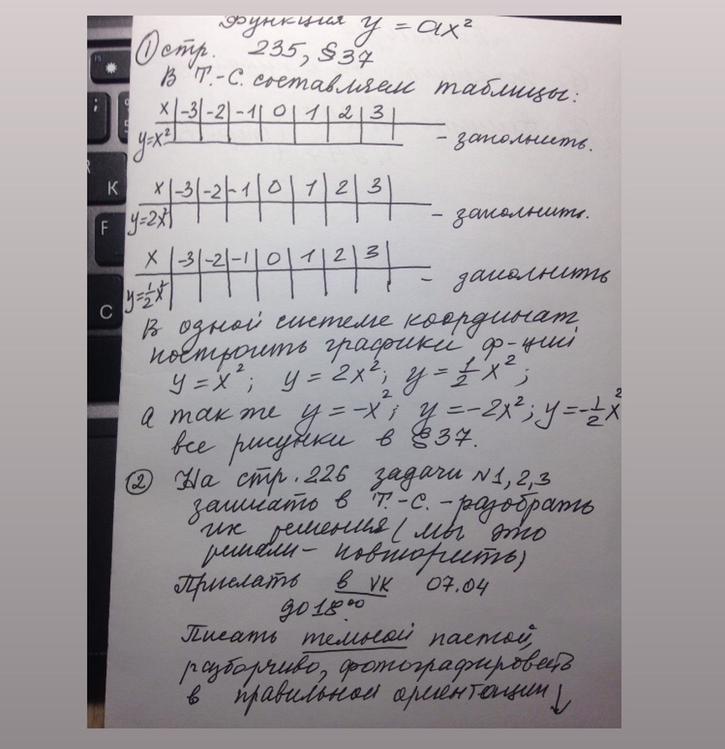 Функция y = ax²
① стр. 235, §37
В Т.-С. составляем таблицы:
x -3 -2 -1 0 1 2 3
y=x² - заполнить.
x -3 -2 -1 0 1 2 3
y=2x² - заполнить.
x -3 -2 -1 0 1 2 3
y=½x² - заполнить
В одной системе координат
построить графики ф-ций
y = x²; y = 2x²; y = ½x²;
а также y = -x²; y = -2x²; y = -½x²
все рисунки в §37.
② На стр. 226 задачи №1, 2, 3
записать в Т.-С. - разобрать
их решения (мы это
решали - повторить)
Прислать в VK 07.04
до 18⁰⁰
Писать темной пастой,
разборчиво, фотографировать
в правильной ориентации ↓
K
F
C
;